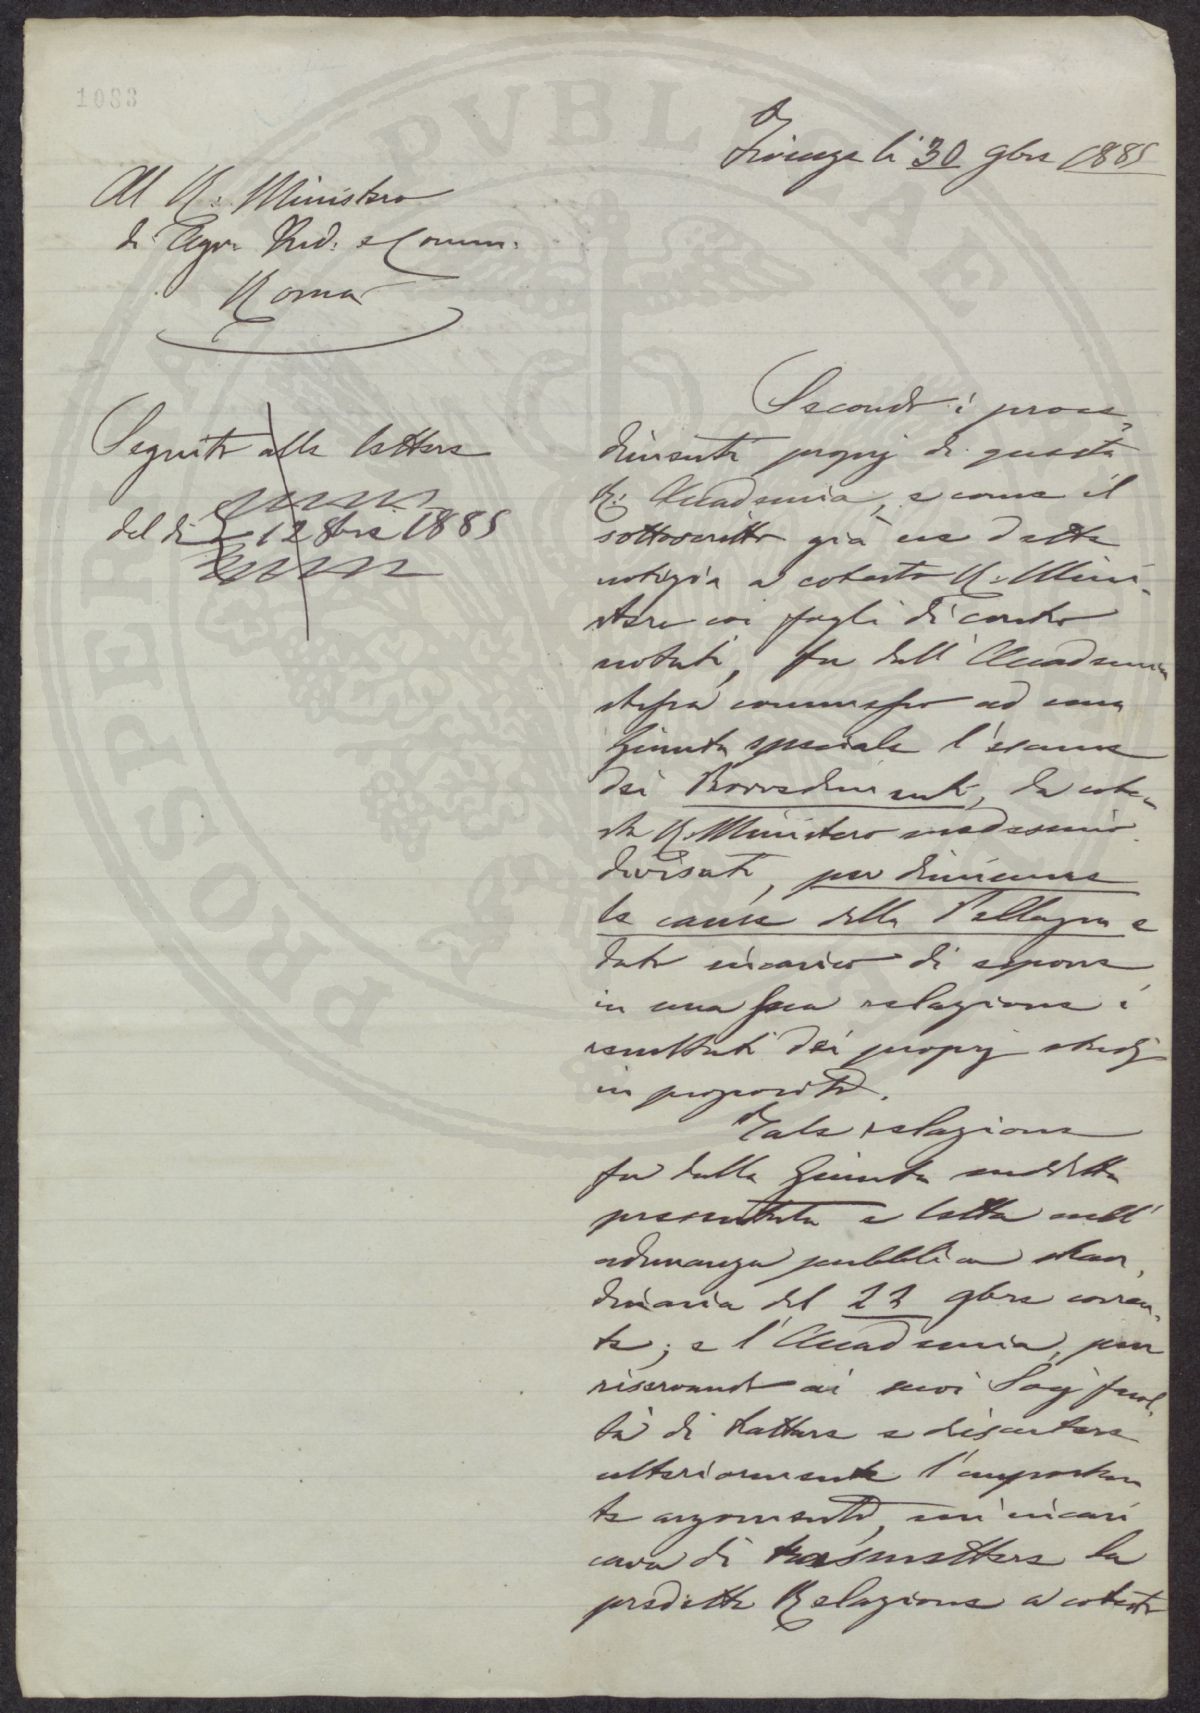 1083
Firenze li 30 9bre 1885
Al R. Ministero
di Agr. Ind. e Comm.
Roma
Seguito alla lettera
del dì 12 8bre 1885
Secondo i proce
dimenti proprj di questa
R. Accademia, e come il
sottoscritto già ne dette
notizia a cotesto R. Mini
stero coi fogli di contro
notati, fu dall'Accademia
stessa commesso ad una
Giunta speciale l'esame
dei Provvedimenti, da cote
sto R. Ministero medesimo
divisati, per diminuire
le cause della Pellagra e
dato incarico di esporre
in una sua relazione i
resultati dei proprj studj
in proposito.
Tale relazione
fu dalla Giunta suddetta
presentata e letta nell'
adunanza pubblica straor
dinaria del 22 9bre corren
te; e l'Accademia, pur
riservando ai suoi Socj facol
tà di trattare e discutere
ulteriormente l'importan
te argomento, mi incari
cava di trasmettere la
predetta Relazione a cotesto
PROSPERITATI PVBLICAE